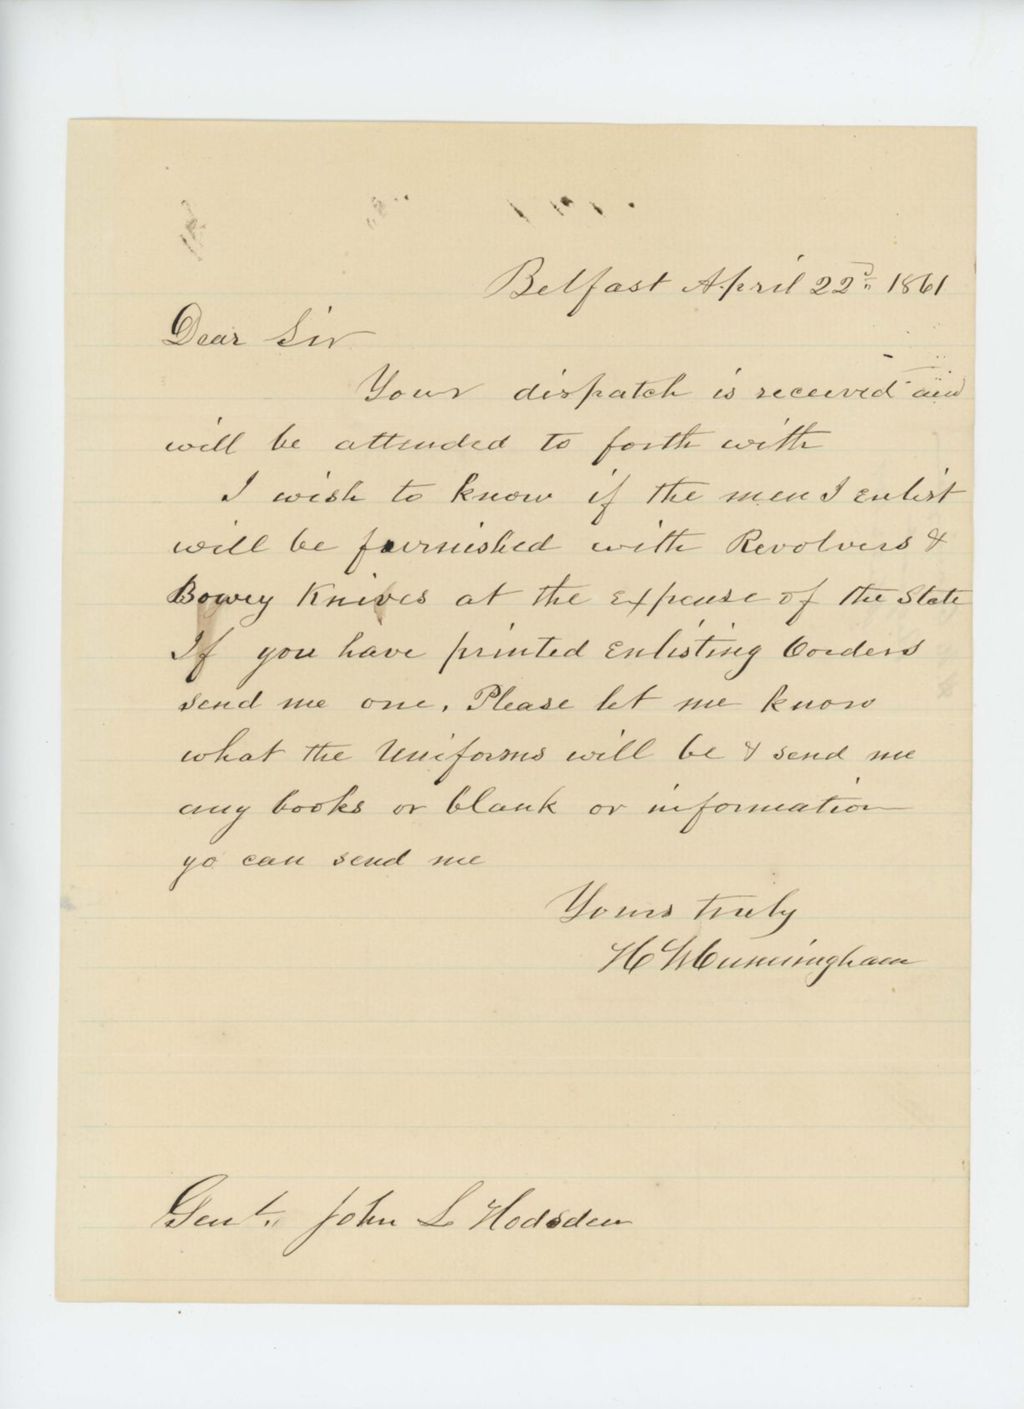 Belfast April 22d 1861
Dear Sir
Your dispatch is received and
will be attended to forth with
I wish to know if the men I enlist
will be furnished with Revolvers &
Bowey Knives at the expense of the State
If you have printed Enlisting Oorders
send me one. Please let me know
what the Uniforms will be & send me
any books or blank or information
yo can send me
Yours truly
H W Cunningham
Genl. John L Hodsden